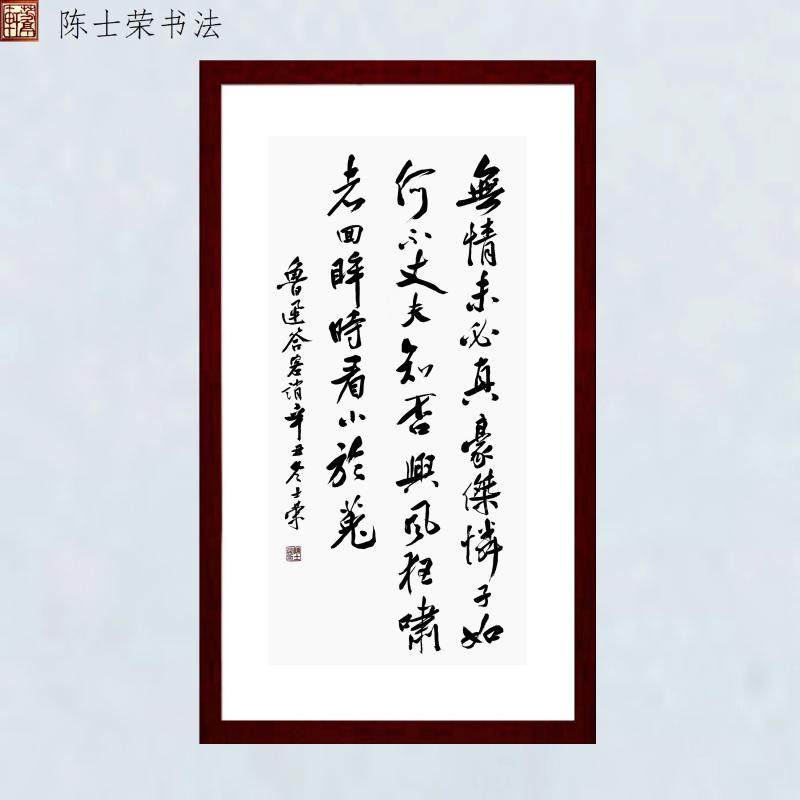 陈士荣书法
無情未必真豪傑憐子如
何不丈夫知否興風狂嘯
者回眸時看小於菟
魯迅答客誚辛丑冬士榮